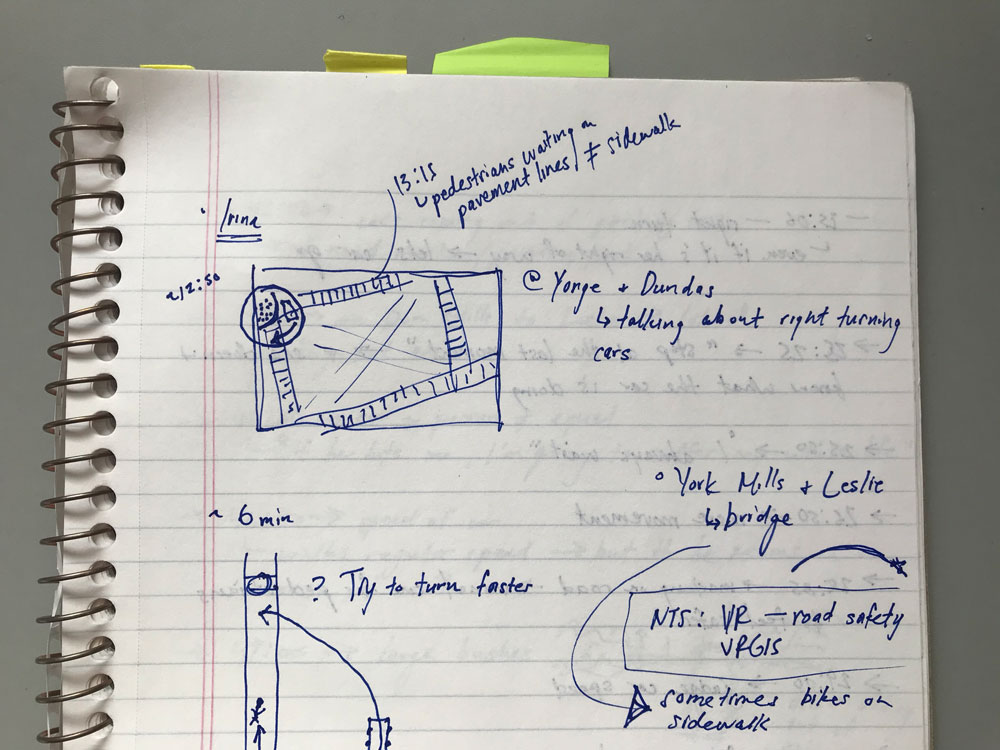 13:15
↳ pedestrians waiting on
pavement lines / ≠ sidewalk
Irina
~12:50
@ Yonge + Dundas
↳ talking about right turning
cars
° York Mills + Leslie
↳ bridge
~ 6 min
? Try to turn faster
NTS: VR — road safety
VRGIS
sometimes bikes on
sidewalk